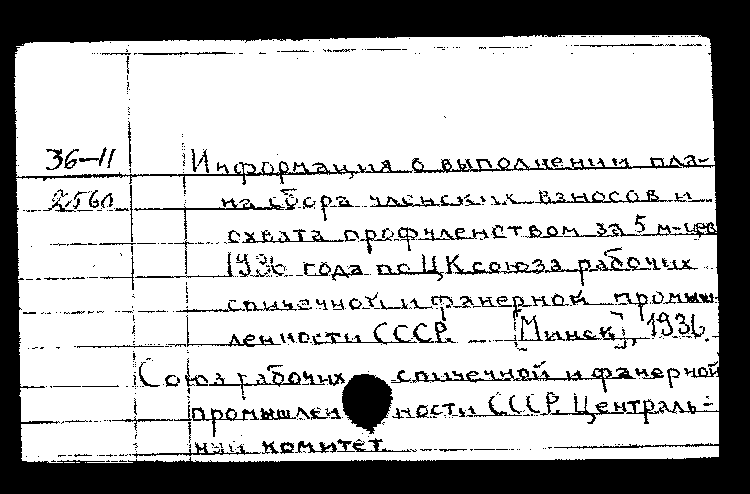 36-11
256л
Информация о выполнении пла-
на сбора членских взносов и
охвата профчленством за 5 м-цев
1936 года по ЦК союза рабочих
спичечной и фанерной промыш-
ленности СССР. [Минск], 1936.
Союз рабочих спичечной и фанерной
промышленности СССР. Централь-
ный комитет.